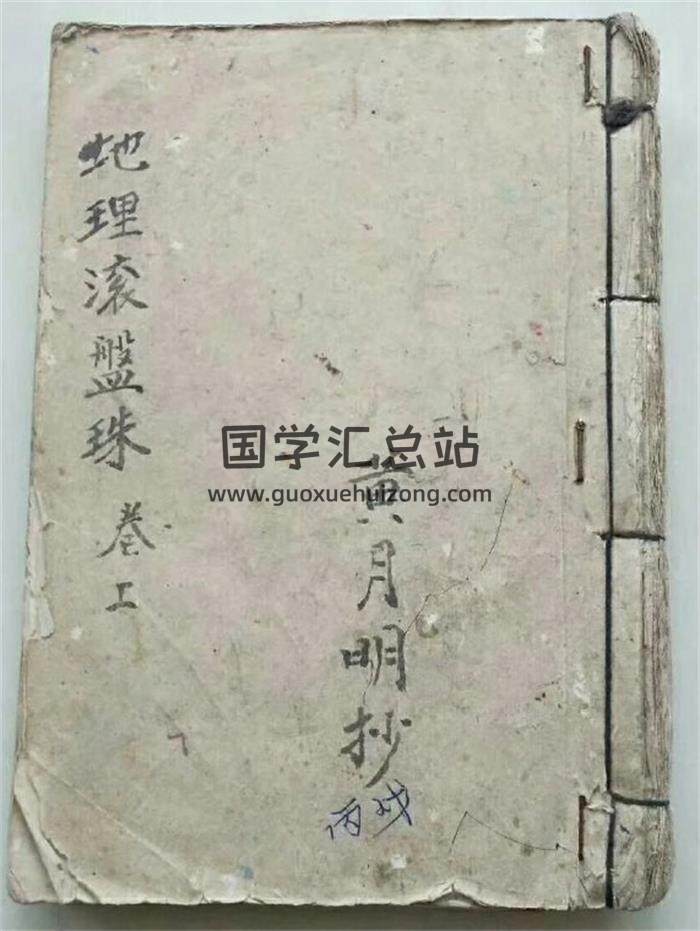 地理滚盤珠 卷上
黄月明抄
丙戌
国学汇总站
www.guoxuehuizong.com